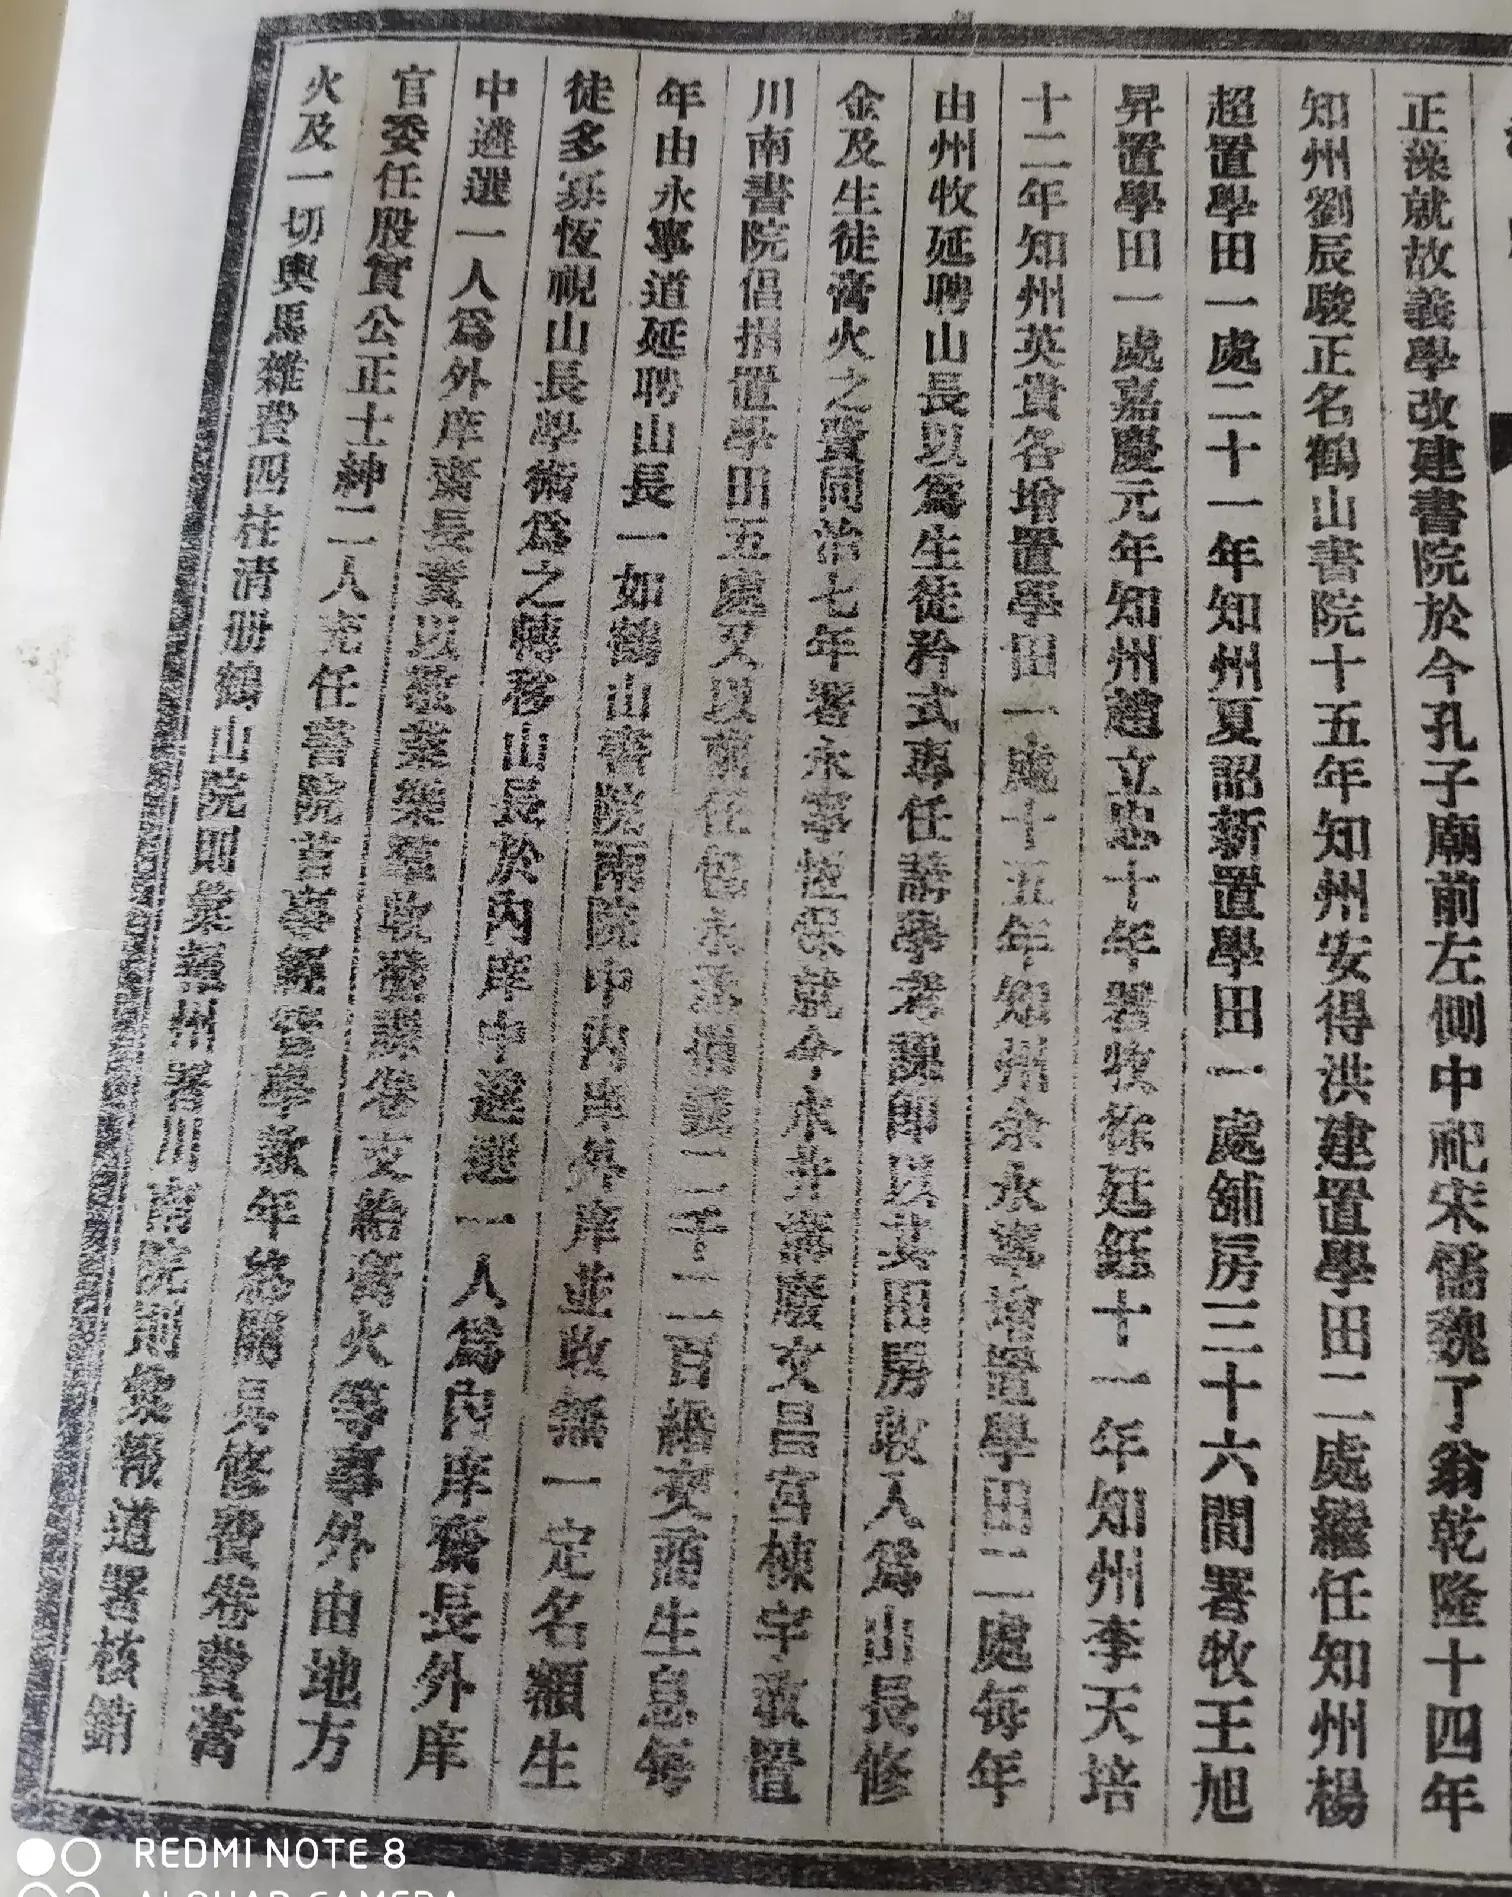 正藻就故義學改建書院於今孔子廟前左側中祀宋儒魏了翁乾隆十四年
知州劉辰駿正名鶴山書院十五年知州安得洪建置學田二處繼任知州楊
超置學田一處二十一年知州夏詔新置學田一處舖房三十六間署牧王旭
昇置學田一處嘉慶元年知州趙立忠十年署牧徐廷鈺十一年知州李天培
十二年知州英貴各增置學田一處十五年知州余永寧增置學田二處每年
由州牧延聘山長以爲生徒矜式專任講學考課即以其田房收入爲山長修
金及生徒膏火之費同治七年署永寧恆保就今水井溝廢文昌宮棟宇改置
川南書院倡捐置學田五處又以前任二千二百緡交商生息每
年由永寧道延聘山長一如鶴山書院兩院中內庠外庠並收無一定名額生
徒多寡恆視山長學術爲之轉移山長於內庠中遴選一人爲內庠齋長外庠
中遴選一人爲外庠齋長責以敬業樂羣收發課卷支給膏火等事外由地方
官委任殷實公正士紳二人充任書院首事經管學款年終開具修費卷費膏
火及一切輿馬雜費四柱清册鶴山院則彙報州署川南院則彙報道署核銷
REDMI NOTE 8
AI QUAD CAMERA